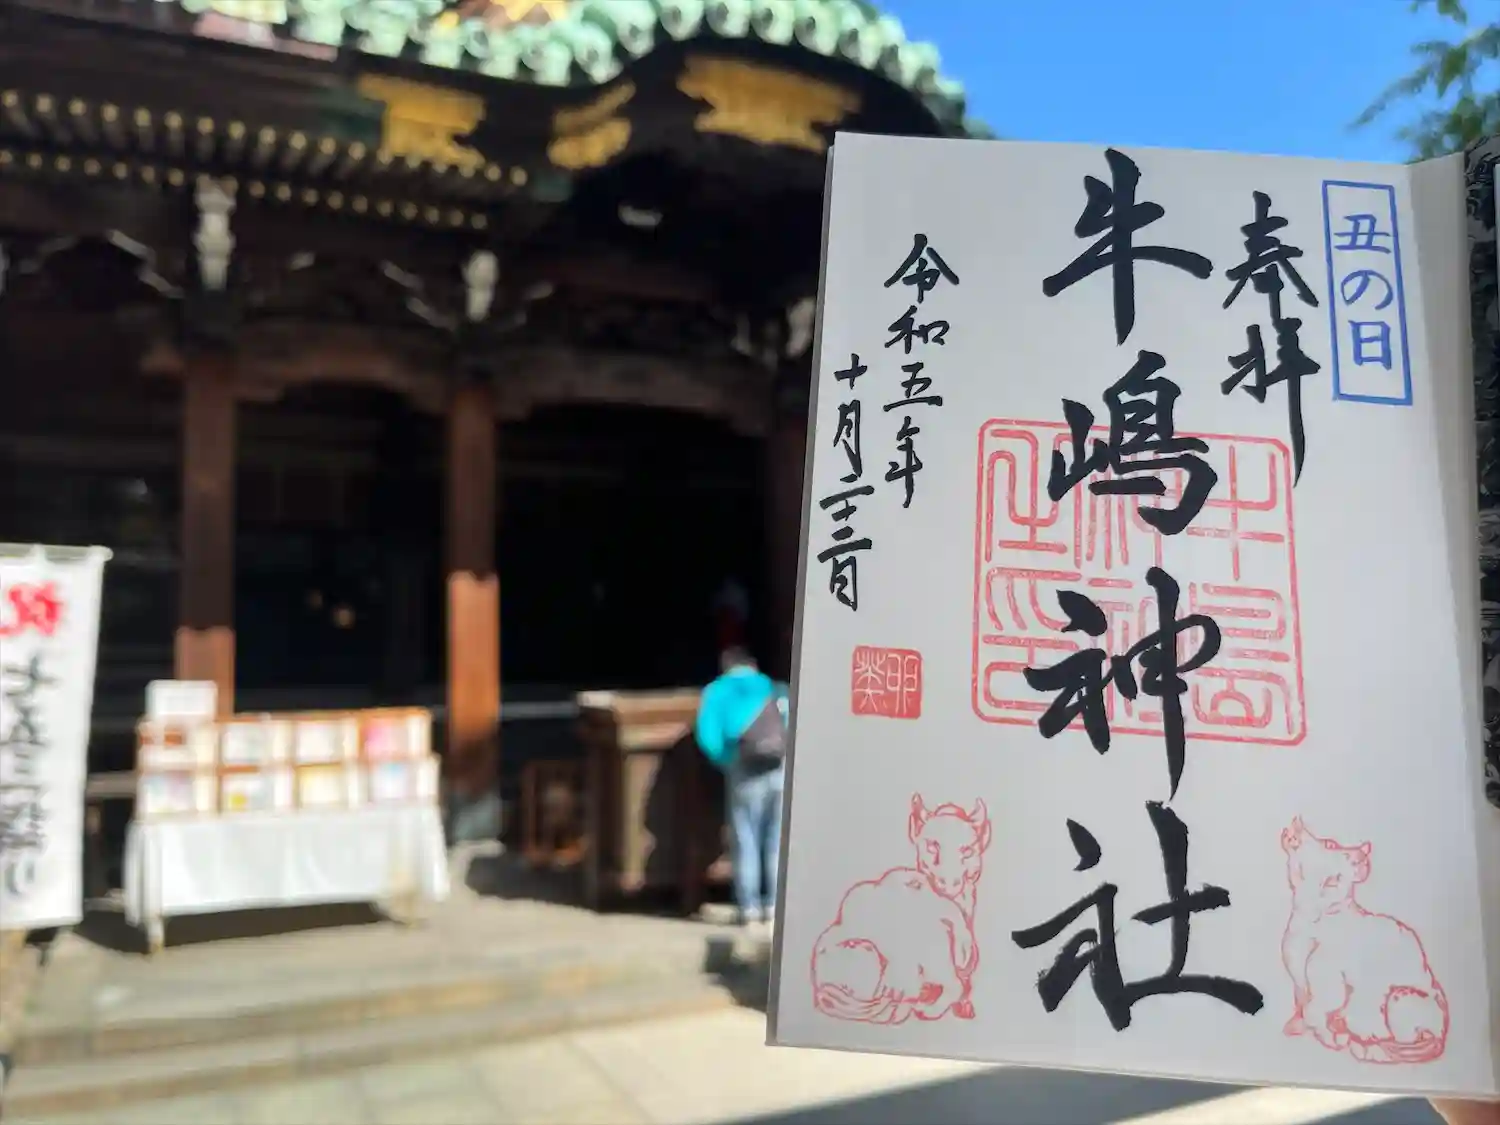 丑の日
奉拝
牛嶋神社
令和五年
十月二十三日